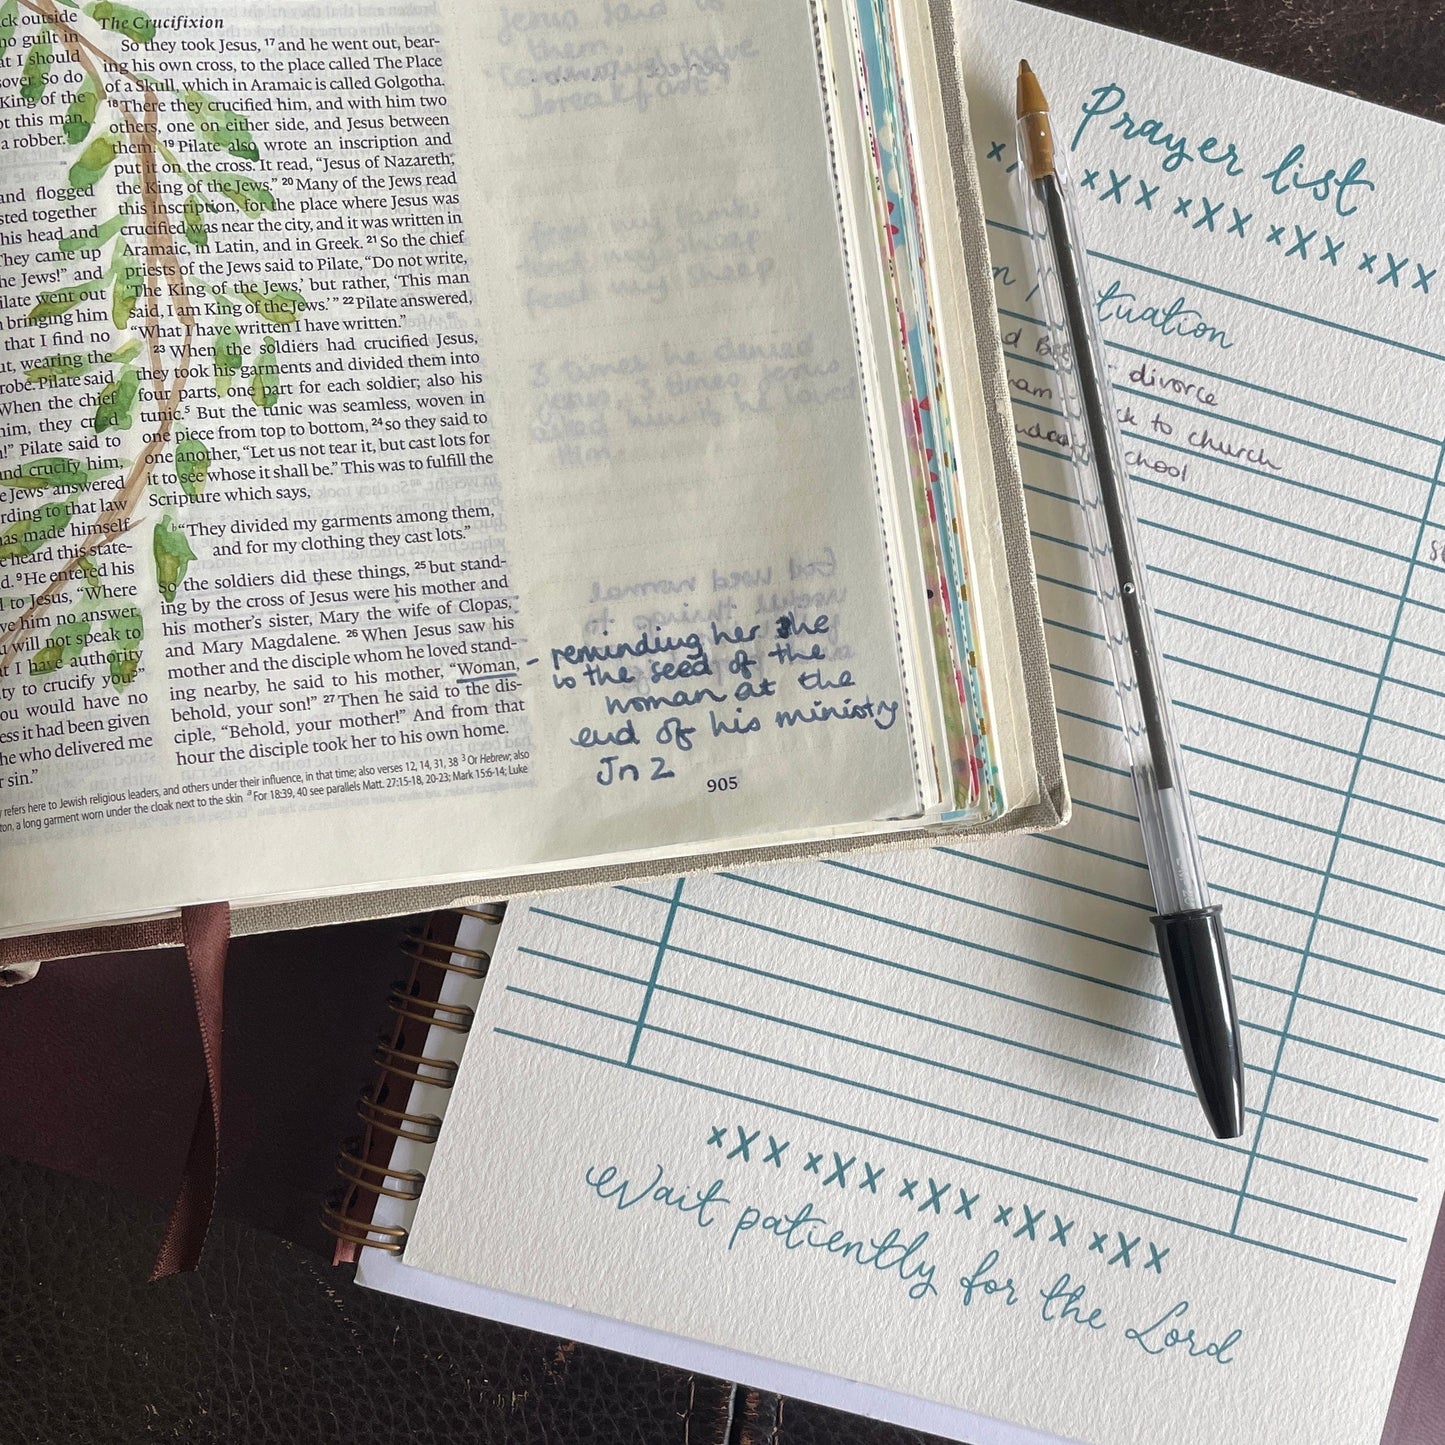 ck outside
no guilt in
at I should
over. So do
King of the
ot this man,
a robber.
and flogged
sted together
his head and
They came up
he Jews!” and
ilate went out
bringing him
that I find no
ut, wearing the
robe. Pilate said
When the chief
him, they cried
Pilate said to
and crucify him,
e Jews answered
rding to that law
has made himself
e heard this state-
d. 9 He entered his
l to Jesus, “Where
ve him no answer.
u will not speak to
at I have authority
ty to crucify you?”
ou would have no
ess it had been given
he who delivered me
r sin.”
The Crucifixion
So they took Jesus, 17 and he went out, bear-
ing his own cross, to the place called The Place
of a Skull, which in Aramaic is called Golgotha.
18 There they crucified him, and with him two
others, one on either side, and Jesus between
them. 19 Pilate also wrote an inscription and
put it on the cross. It read, “Jesus of Nazareth,
the King of the Jews.” 20 Many of the Jews read
this inscription, for the place where Jesus was
crucified was near the city, and it was written in
Aramaic, in Latin, and in Greek. 21 So the chief
priests of the Jews said to Pilate, “Do not write,
‘The King of the Jews,’ but rather, ‘This man
said, I am King of the Jews.’” 22 Pilate answered,
“What I have written I have written.”
23 When the soldiers had crucified Jesus,
they took his garments and divided them into
four parts, one part for each soldier; also his
tunic.5 But the tunic was seamless, woven in
one piece from top to bottom, 24 so they said to
one another, “Let us not tear it, but cast lots for
it to see whose it shall be.” This was to fulfill the
Scripture which says,
h“They divided my garments among them,
and for my clothing they cast lots.”
So the soldiers did these things, 25 but stand-
ing by the cross of Jesus were his mother and
his mother’s sister, Mary the wife of Clopas,
and Mary Magdalene. 26 When Jesus saw his
mother and the disciple whom he loved stand-
ing nearby, he said to his mother, “Woman,
behold, your son!” 27 Then he said to the dis-
ciple, “Behold, your mother!” And from that
hour the disciple took her to his own home.
refers here to Jewish religious leaders, and others under their influence, in that time; also verses 12, 14, 31, 38 3 Or Hebrew; also
ton, a long garment worn under the cloak next to the skin a For 18:39, 40 see parallels Matt. 27:15-18, 20-23; Mark 15:6-14; Luke
905
Jesus said to
them,
breakfast
feed my lambs
tend my sheep
feed my sheep
3 times he denied
Jesus, 3 times Jesus
asked he loved
Him.
- reminding her she
is the seed of the
woman at the
end of his ministry
Jn 2
Prayer list
xXX xXX xXX xXX
n / tuation
- divorce
ham ck to church
chool
xXX xXX xXX xXX xXX
Wait patiently for the Lord